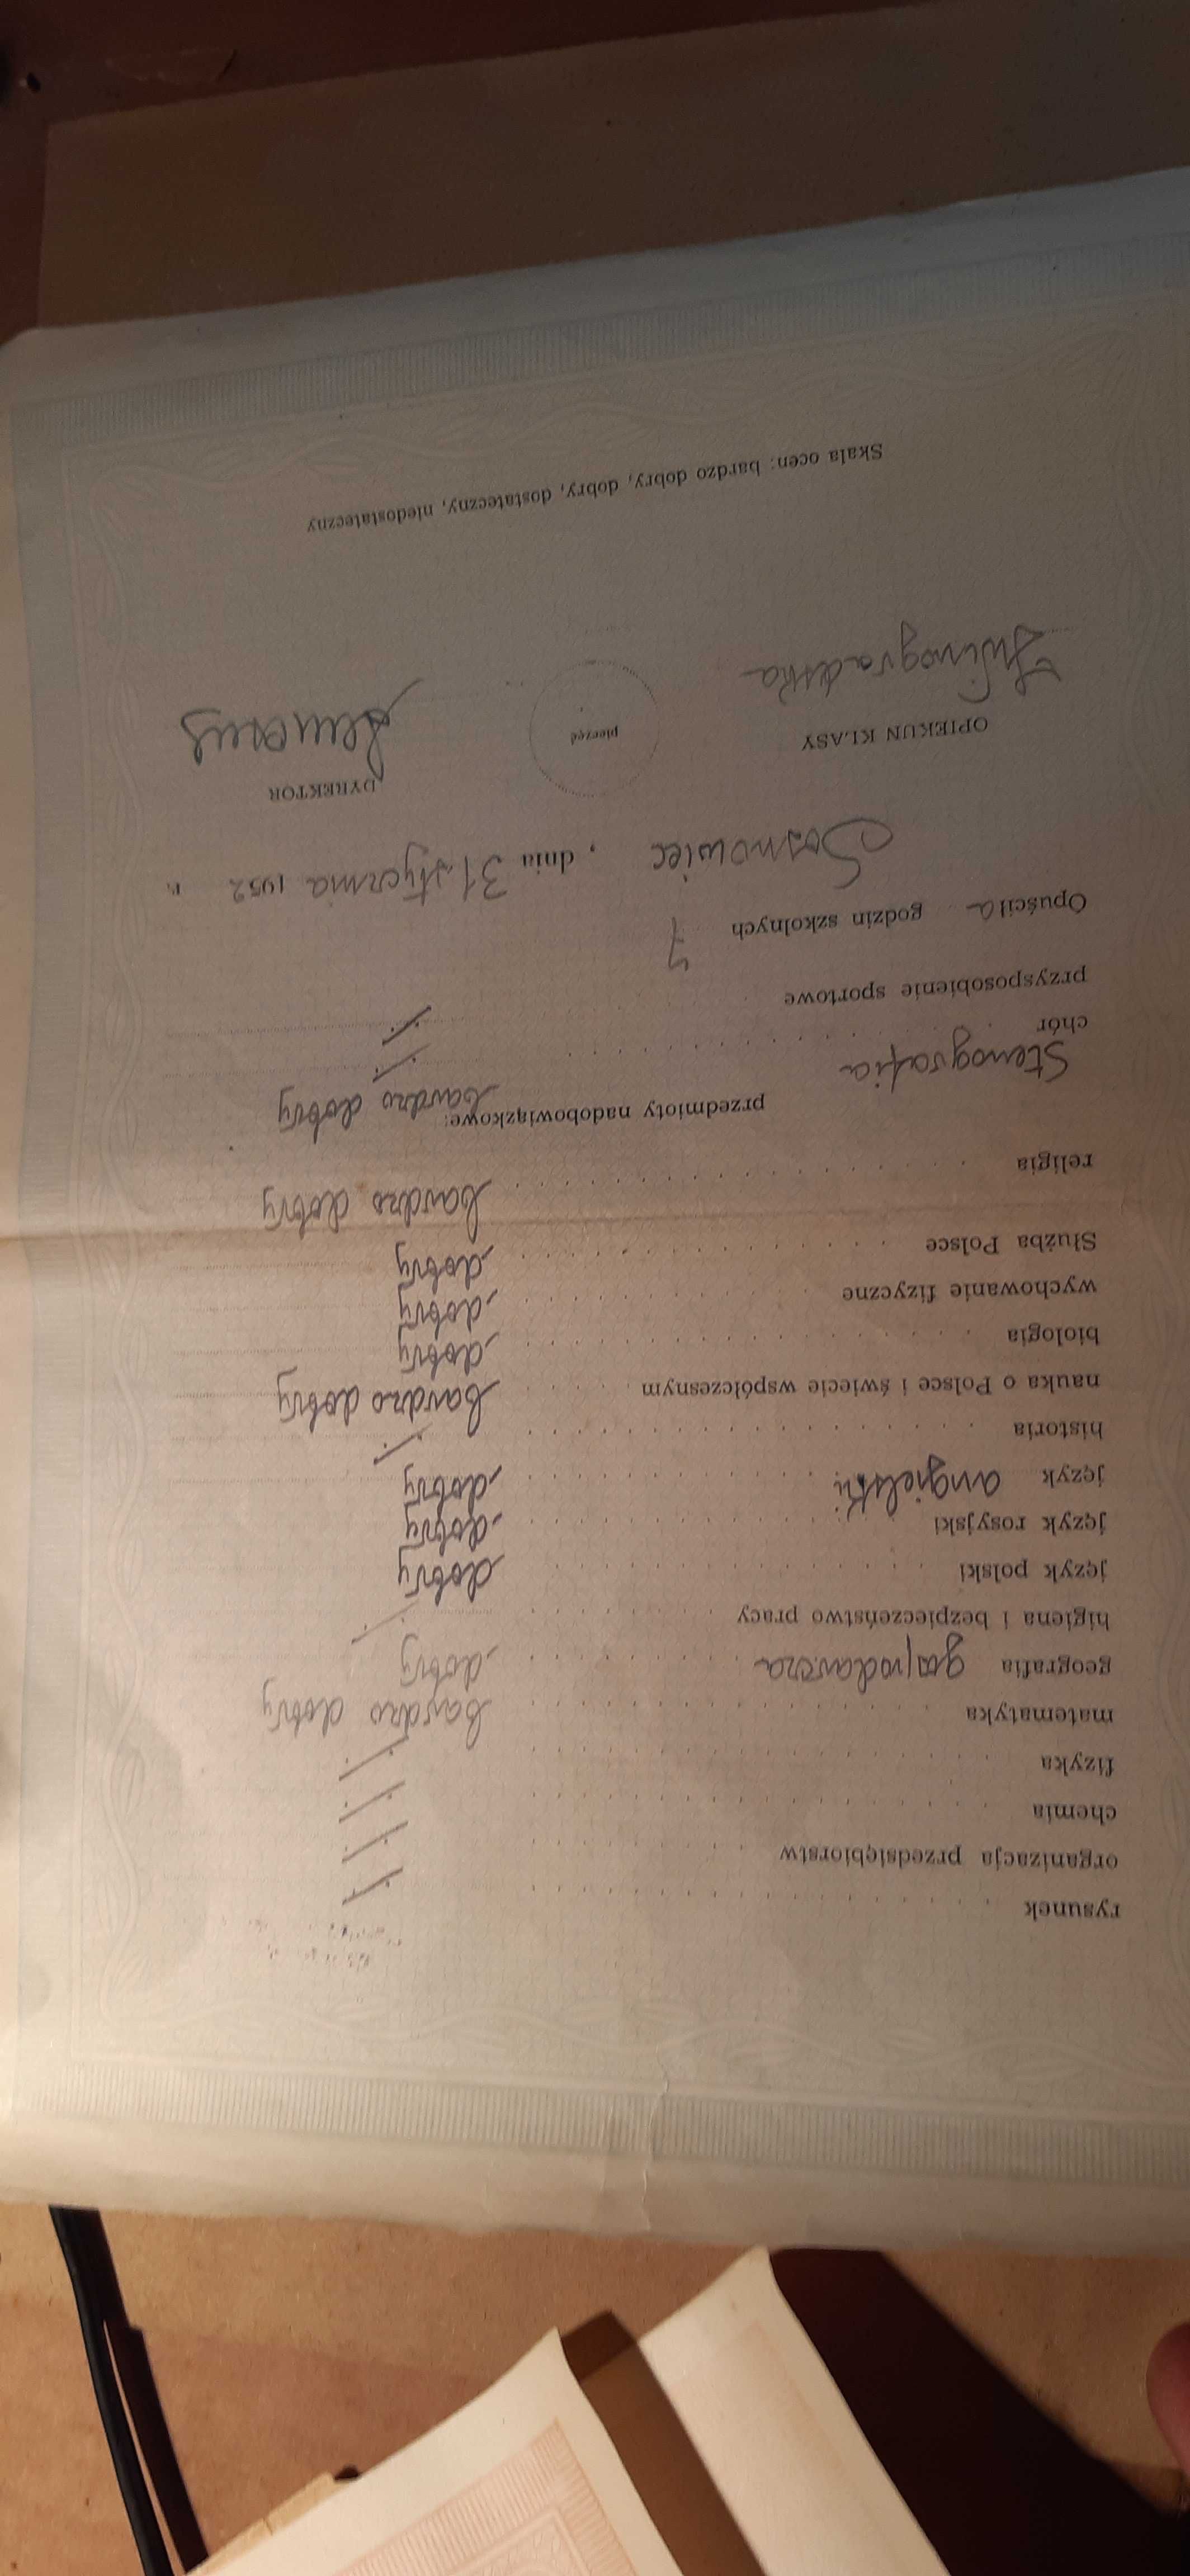 rysunek ./.
organizacja przedsiębiorstw ./.
chemia ./.
fizyka ./.
matematyka bardzo dobry
geografia gospodarcza dobry
higiena i bezpieczeństwo pracy ./.
język polski dobry
język rosyjski dobry
język angielski dobry
historia ./.
nauka o Polsce i świecie współczesnym bardzo dobry
biologia dobry
wychowanie fizyczne dobry
Służba Polsce dobry
religia bardzo dobry
przedmioty nadobowiązkowe:
Stenografia bardzo dobry
chór ./.
przysposobienie sportowe ./.
Opuściła godzin szkolnych 7
Sosnowiec, dnia 31 stycznia 1952 r.
OPIEKUN KLASY
pieczęć
DYREKTOR
Skala ocen: bardzo dobry, dobry, dostateczny, niedostateczny